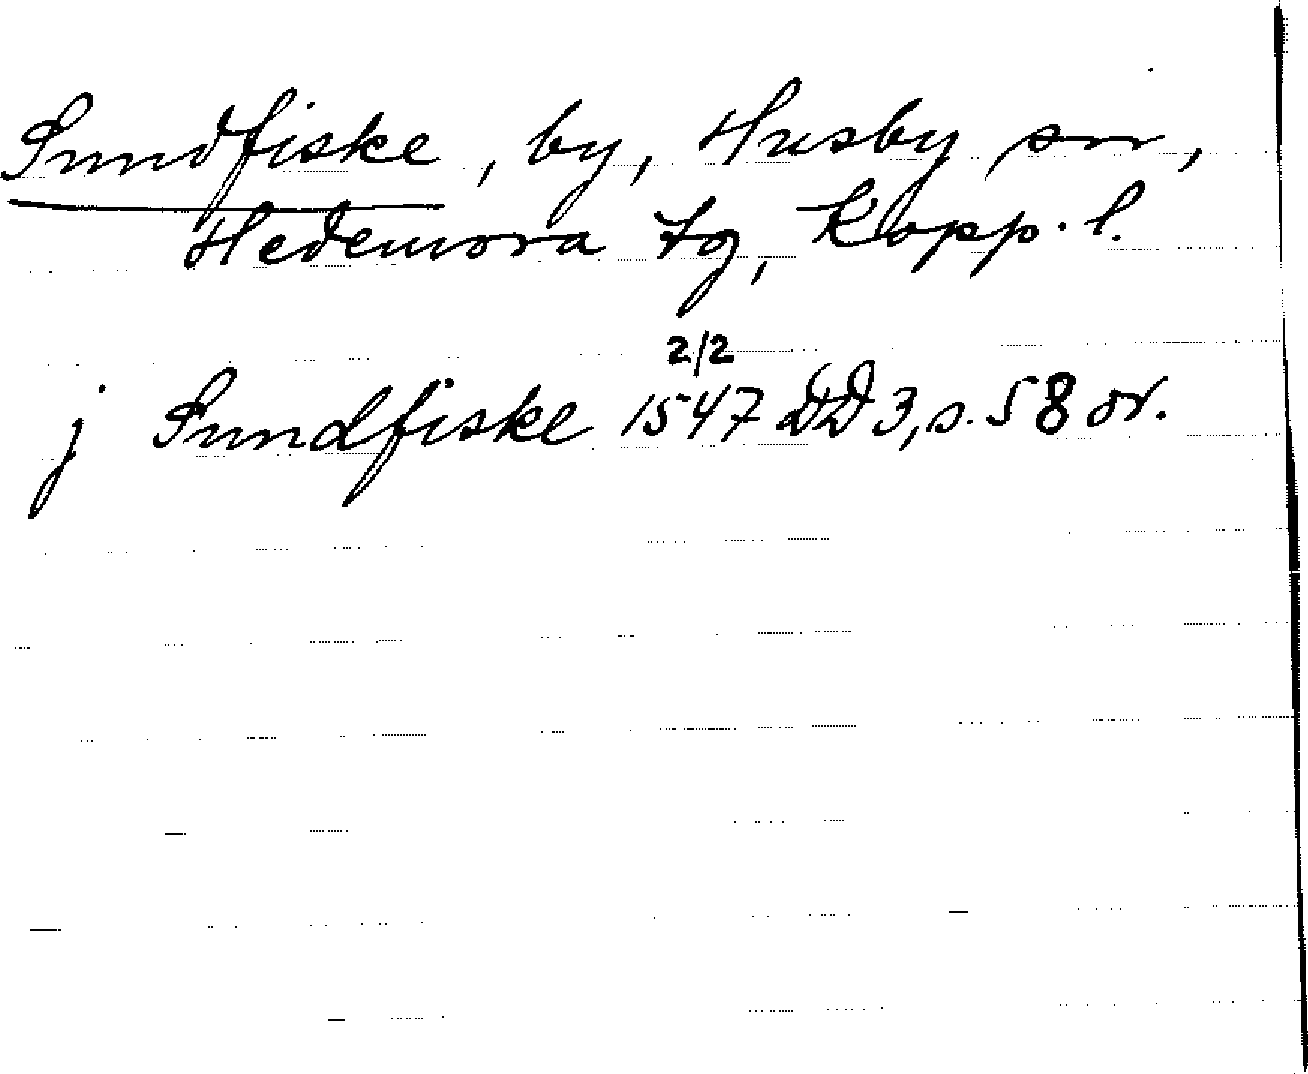 Sundfiske, by, Husby sn,
Hedemora tg, Kopp. l.
2/2
j Sundfiske 1547 DD 3, s. 58 or.